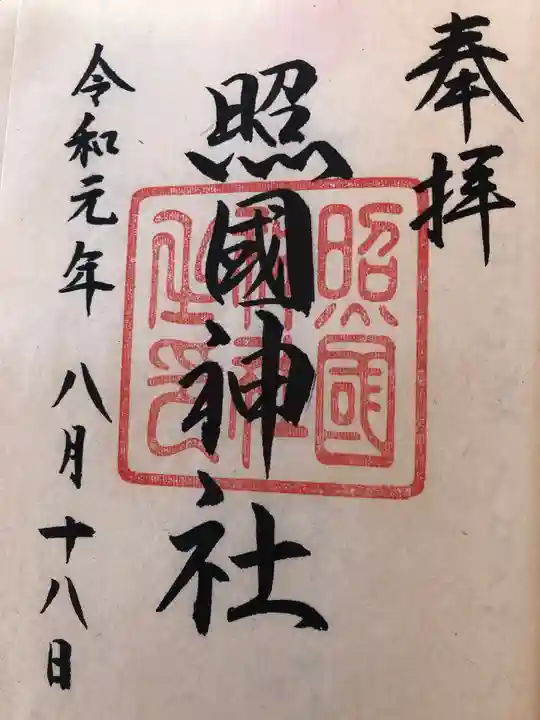 奉拝
照國神社
照國
神社
令和元年 八月十八日